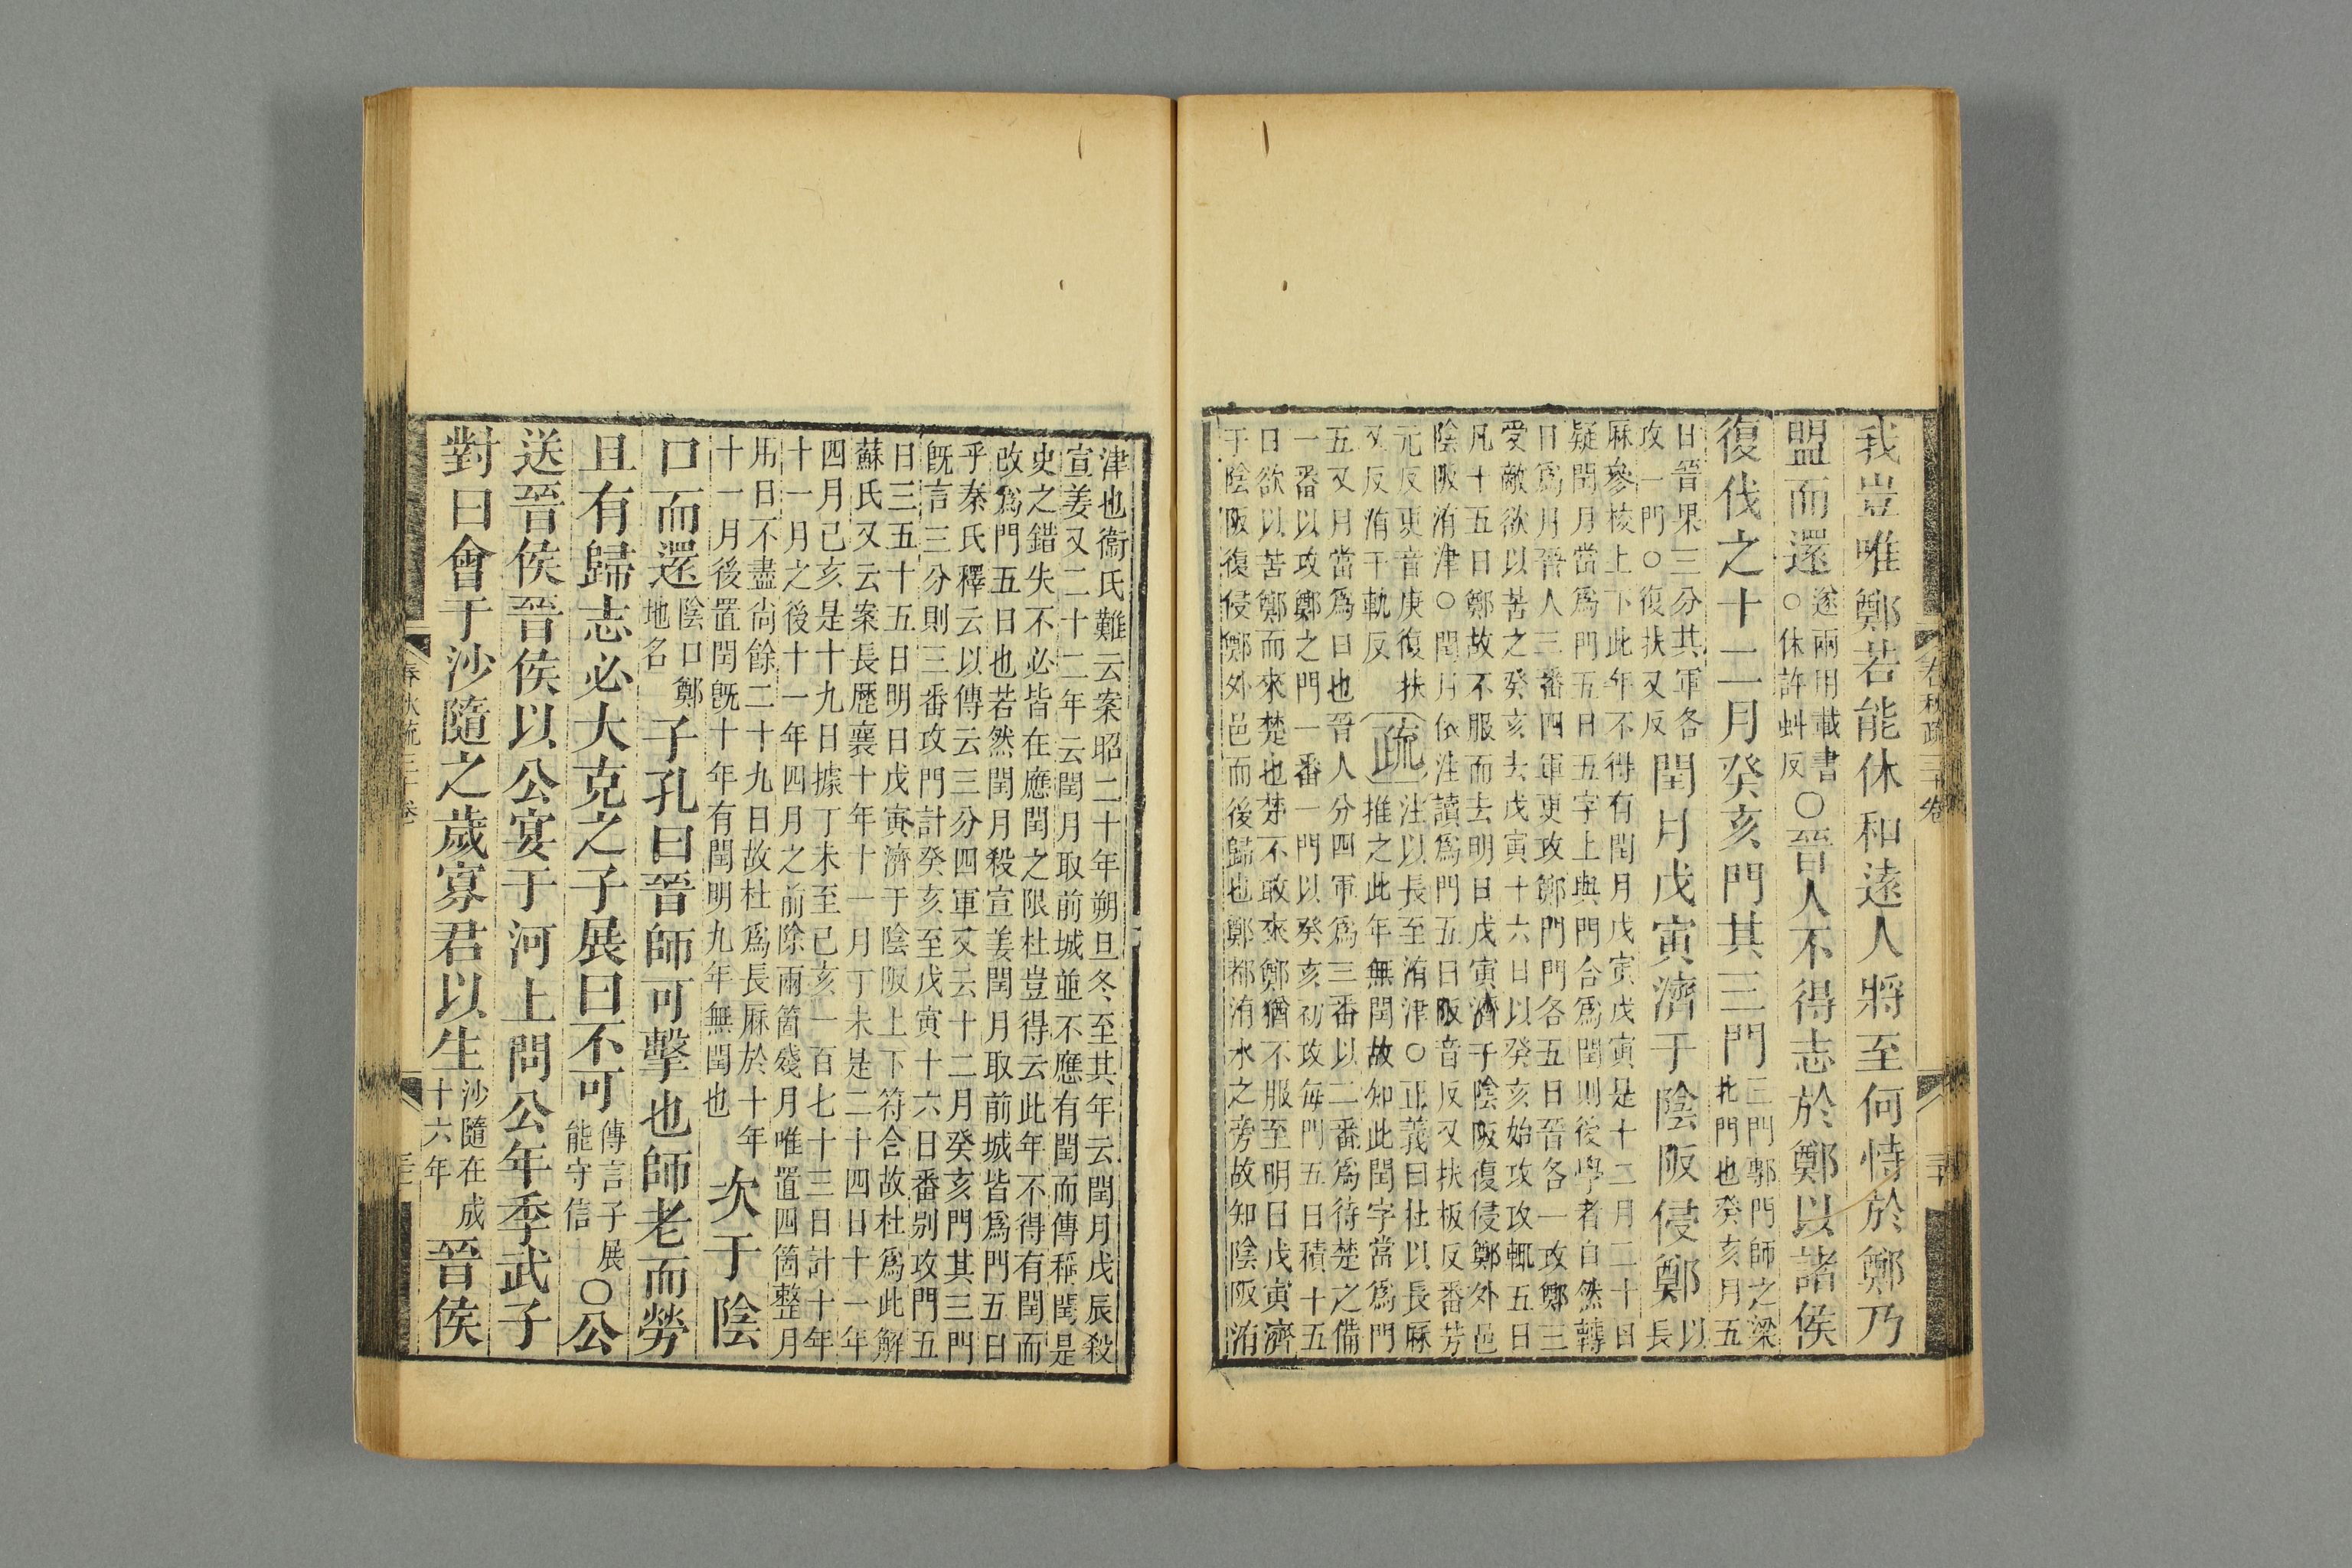 我豈唯鄭若能休和遠人將至何恃於鄭乃
盟而還遂兩用載書○休許虯反○晉人不得志於鄭以諸侯
復伐之十二月癸亥門其三門三門鄟門師之梁北門也癸亥月五
日晉果三分其軍各攻一門○復扶又反閏月戊寅濟于陰阪侵鄭以長
厤參校上下此年不得有閏月戊寅戊寅是十二月二十日
疑閏月當爲門五日五字上與門合爲閏則後學者自然轉
日爲月晉人三番四軍更攻鄭門門各五日晉各一攻鄭三
受敵欲以苦之癸亥去戊寅十六日以癸亥始攻攻輒五日
凡十五日鄭故不服而去明日戊寅濟于陰阪復侵鄭外邑
陰阪洧津○閏月依注讀爲門五日阪音反又扶板反番芳
元反更音庚復扶又反洧于軌反疏注以長至洧津○正義曰杜以長厤
推之此年無閏故知此閏字當爲門
五又月當爲日也晉人分四軍爲三番以二番爲待楚之備
一番以攻鄭之門一番一門以癸亥初攻每門五日積十五
日欲以苦鄭而來楚也楚不敢來鄭猶不服至明日戊寅濟
于陰阪復侵鄭外邑而後歸也鄭都洧水之旁故知陰阪洧
春秋疏三十卷
津也衞氏難云案昭二十年朔旦冬至其年云閏月戊辰殺
宣姜又二十二年云閏月取前城並不應有閏而傳稱閏是
史之錯失不必皆在應閏之限杜豈得云此年不得有閏而
改爲門五日也若然閏月殺宣姜閏月取前城皆爲門五日
乎秦氏釋云以傳云三分四軍又云十二月癸亥門其三門
旣言三分則三番攻門計癸亥至戊寅十六日番别攻門五
日三五十五日明日戊寅濟于陰阪上下符合故杜爲此解
蘇氏又云案長歷襄十年十一月丁未是二十四日十一年
四月己亥是十九日據丁未至己亥一百七十三日計十年
十一月之後十一年四月之前除兩箇殘月唯置四箇整月
用日不盡尚餘二十九日故杜爲長厤於十年
十一月後置閏旣十年有閏明九年無閏也次于陰
口而還陰口鄭地名子孔曰晉師可擊也師老而勞
且有歸志必大克之子展曰不可傳言子展能守信○公
送晉侯晉侯以公宴于河上問公年季武子
對曰會于沙隨之歲寡君以生沙隨在成十六年晉侯
春秋疏三十卷